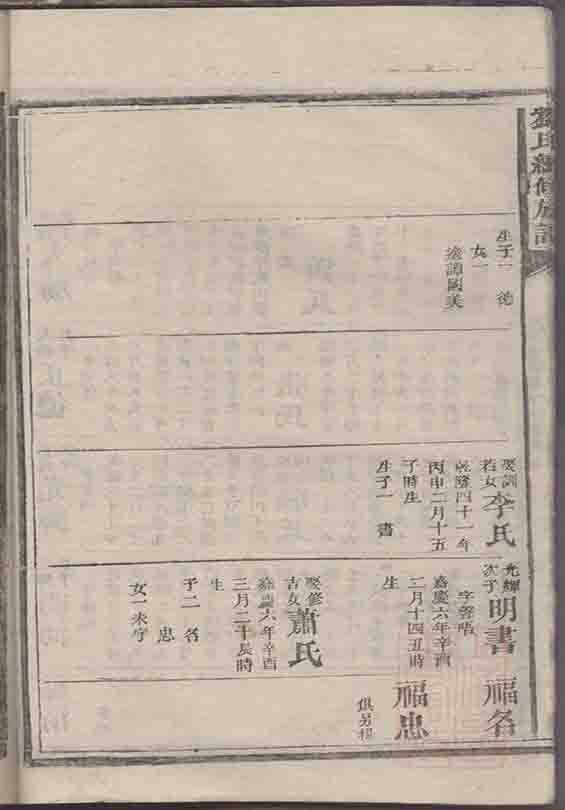 劉氏續修族譜
生子一 德
女一
適譚國美
娶訓
若女李氏
乾隆四十一年
丙申二月十五
子時生
生子一 書
光輝
次子明書
字聲唱
嘉慶六年辛酉
二月十四丑時
生
娶修
吉女蕭氏
嘉慶六年辛酉
三月二十辰時
生
子二 名
忠
女一未字
福名
福忠
俱另提